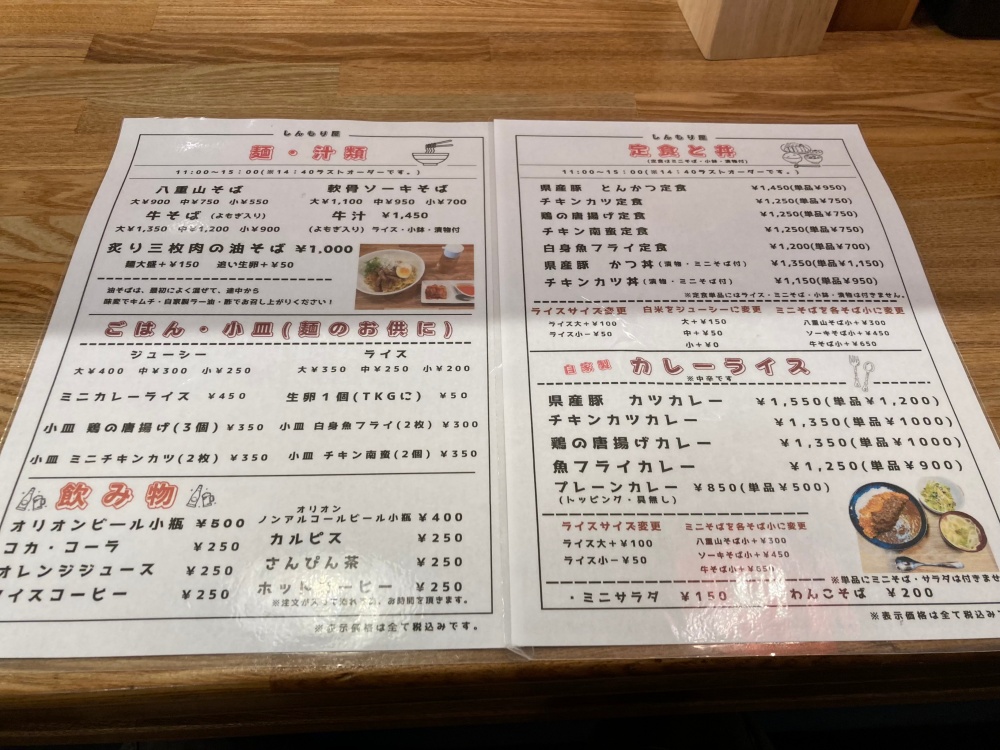 しんもり屋
麺・汁類
11:00~15:00(※14:40ラストオーダーです。)
八重山そば
大¥900 中¥750 小¥550
軟骨ソーキそば
大¥1,100 中¥950 小¥700
牛そば (よもぎ入り)
大¥1,350 中¥1,200 小¥900
牛汁 ¥1,450
(よもぎ入り) ライス・小鉢・漬物付
炙り三枚肉の油そば ¥1.000
麺大盛+¥150 追い生卵+¥50
油そばは、最初によく混ぜて、途中から
味変でキムチ・自家製ラー油・酢でお召し上がりください!
ごはん・小皿(麺のお供に)
ジューシー
大¥400 中¥300 小¥250
ライス
大¥350 中¥250 小¥200
ミニカレーライス ¥450
生卵1個(TKGに) ¥50
小皿 鶏の唐揚げ(3個) ¥350
小皿 白身魚フライ(2枚) ¥300
小皿 ミニチキンカツ(2枚) ¥350
小皿 チキン南蛮(2個) ¥350
飲み物
オリオンビール小瓶 ¥500
オリオン
ノンアルコールビール小瓶 ¥400
コカ・コーラ ¥250
カルピス ¥250
オレンジジュース ¥250
さんぴん茶 ¥250
アイスコーヒー ¥250
ホットコーヒー ¥250
※表示価格は全て税込みです。
しんもり屋
定食と丼
(定食はミニそば・小鉢・漬物付)
11:00~15:00(※14:40ラストオーダーです。)
県産豚 とんかつ定食 ¥1,450(単品¥950)
チキンカツ定食 ¥1,250(単品¥750)
鶏の唐揚げ定食 ¥1,250(単品¥750)
チキン南蛮定食 ¥1,250(単品¥750)
白身魚フライ定食 ¥1,200(単品¥700)
県産豚 かつ丼(漬物・ミニそば付) ¥1,350(単品¥1,150)
チキンカツ丼(漬物・ミニそば付) ¥1,150(単品¥950)
※定食単品にはライス・ミニそば・小鉢・漬物は付きません。
ライスサイズ変更
ライス大+¥100
ライス小-¥50
白米をジューシーに変更
大+¥150
中+¥50
小+¥0
ミニそばを各そば小に変更
八重山そば小+¥300
ソーキそば小+¥450
牛そば小+¥650
自家製 カレーライス
※中辛です
県産豚 カツカレー ¥1,550(単品¥1,200)
チキンカツカレー ¥1,350(単品¥1000)
鶏の唐揚げカレー ¥1,350(単品¥1000)
魚フライカレー ¥1,250(単品¥900)
プレーンカレー ¥850(単品¥500)
(トッピング・具無し)
ライスサイズ変更
ライス大+¥100
ライス小-¥50
ミニそばを各そば小に変更
八重山そば小+¥300
ソーキそば小+¥450
牛そば小+¥650
※単品にミニそば・サラダは付きませ
・ミニサラダ ¥150
わんこそば ¥200
※表示価格は全て税込みで